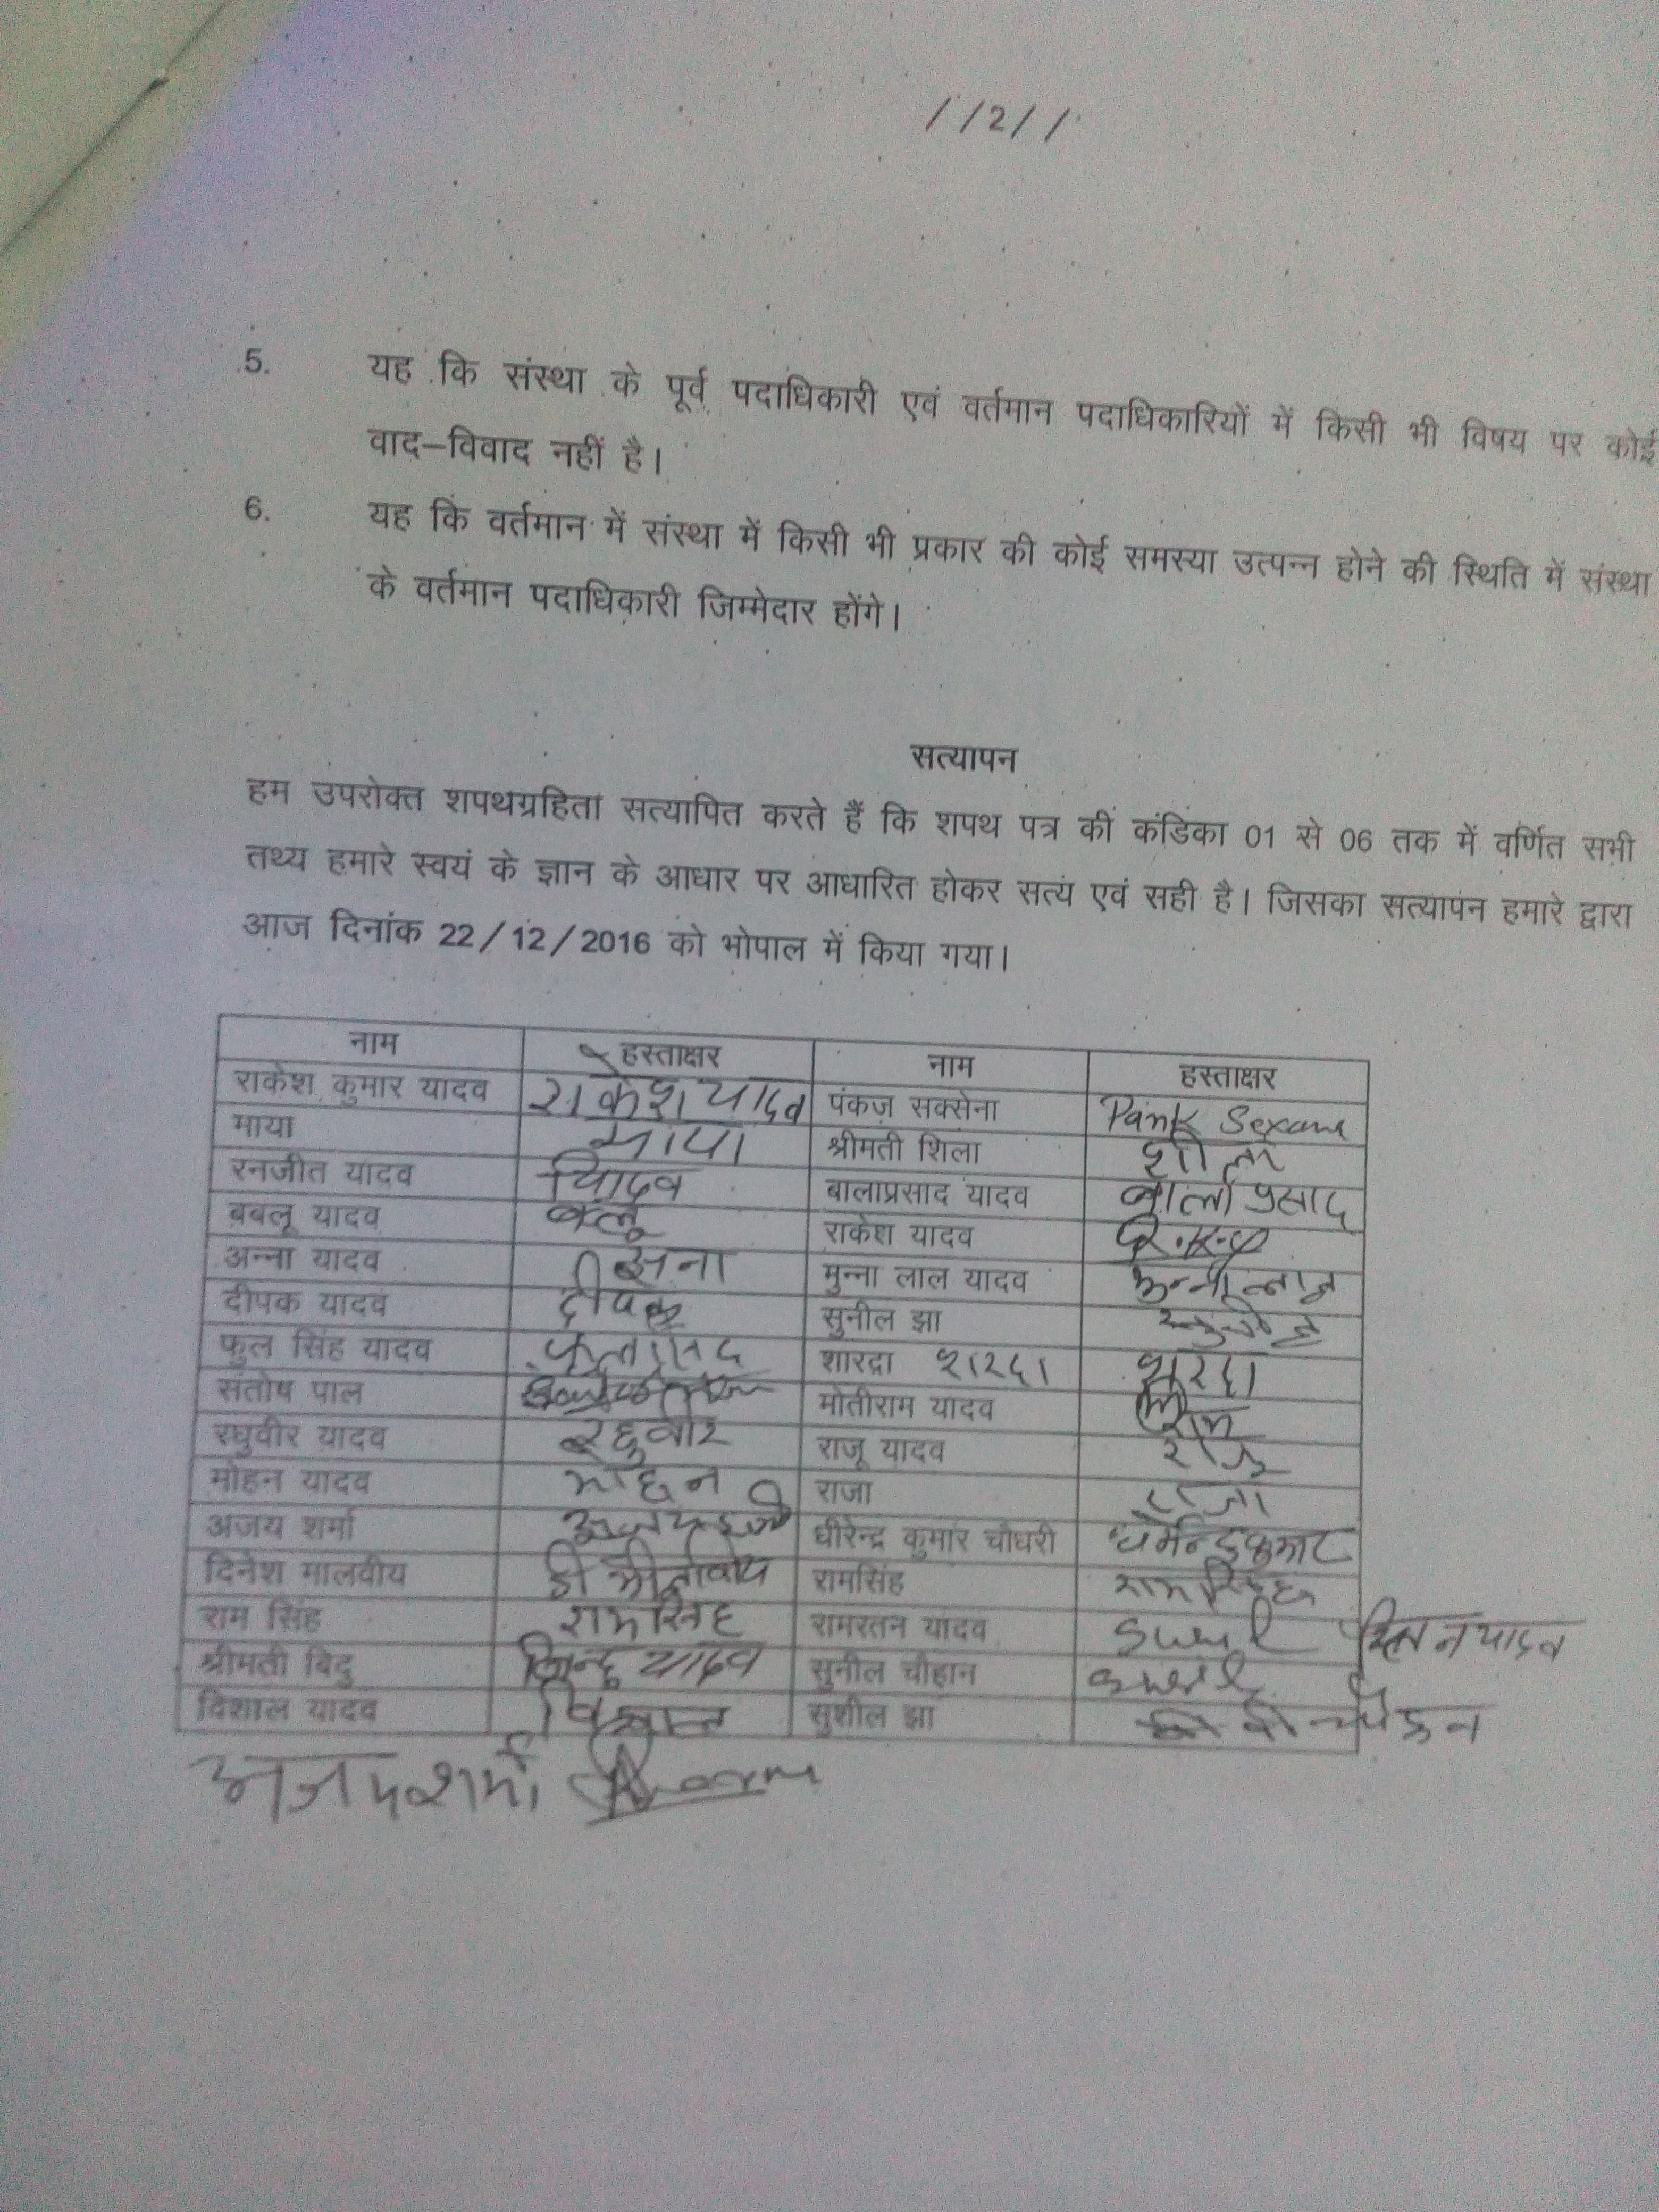 //2//
5. यह कि संस्था के पूर्व पदाधिकारी एवं वर्तमान पदाधिकारियों में किसी भी विषय पर कोई
वाद–विवाद नहीं है।
6. यह कि वर्तमान में संस्था में किसी भी प्रकार की कोई समस्या उत्पन्न होने की स्थिति में संस्था
के वर्तमान पदाधिकारी जिम्मेदार होंगे।
सत्यापन
हम उपरोक्त शपथग्रहिता सत्यापित करते हैं कि शपथ पत्र की कंडिका 01 से 06 तक में वर्णित सभी
तथ्य हमारे स्वयं के ज्ञान के आधार पर आधारित होकर सत्य एवं सही है। जिसका सत्यापन हमारे द्वारा
आज दिनांक 22/12/2016 को भोपाल में किया गया।
नाम हस्ताक्षर नाम हस्ताक्षर
राकेश कुमार यादव राकेश यादव पंकज सक्सेना
माया माया श्रीमती शिला शीला
रनजीत यादव बालाप्रसाद यादव बालाप्रसाद
बबलू यादव राकेश यादव
अन्ना यादव मुन्ना लाल यादव
दीपक यादव दीपक सुनील झा
फुल सिंह यादव शारद्रा शारदा शारदा
संतोष पाल मोतीराम यादव
रघुवीर यादव रघुवीर राजू यादव राजू
मोहन यादव मोहन राजा राजा
अजय शर्मा धीरेन्द्र कुमार चौधरी
दिनेश मालवीय रामसिंह रामसिंह
राम सिंह रामसिंह रामरतन यादव
श्रीमती बिदु बिन्दु यादव सुनील चौहान
विशाल यादव विशाल सुशील झा
अजय शर्मा